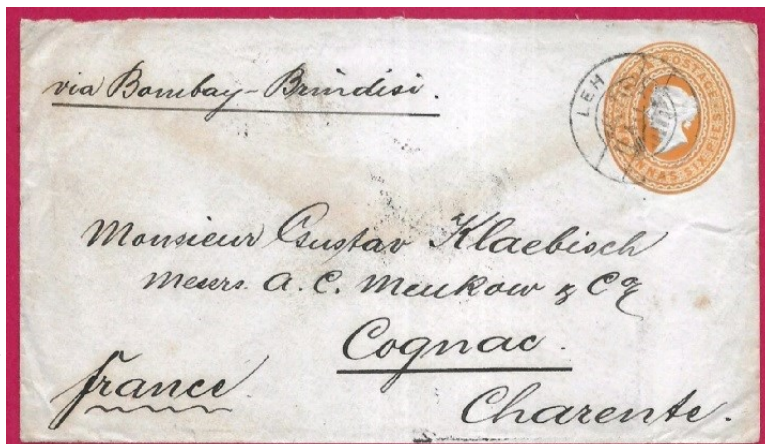 via Bombay-Brindisi.
LEH
POSTAGE
ANNAS SIX PIES
Monsieur Gustav Klaebisch
Messrs. A. C. Meukow & Co
Cognac.
France.
Charente.